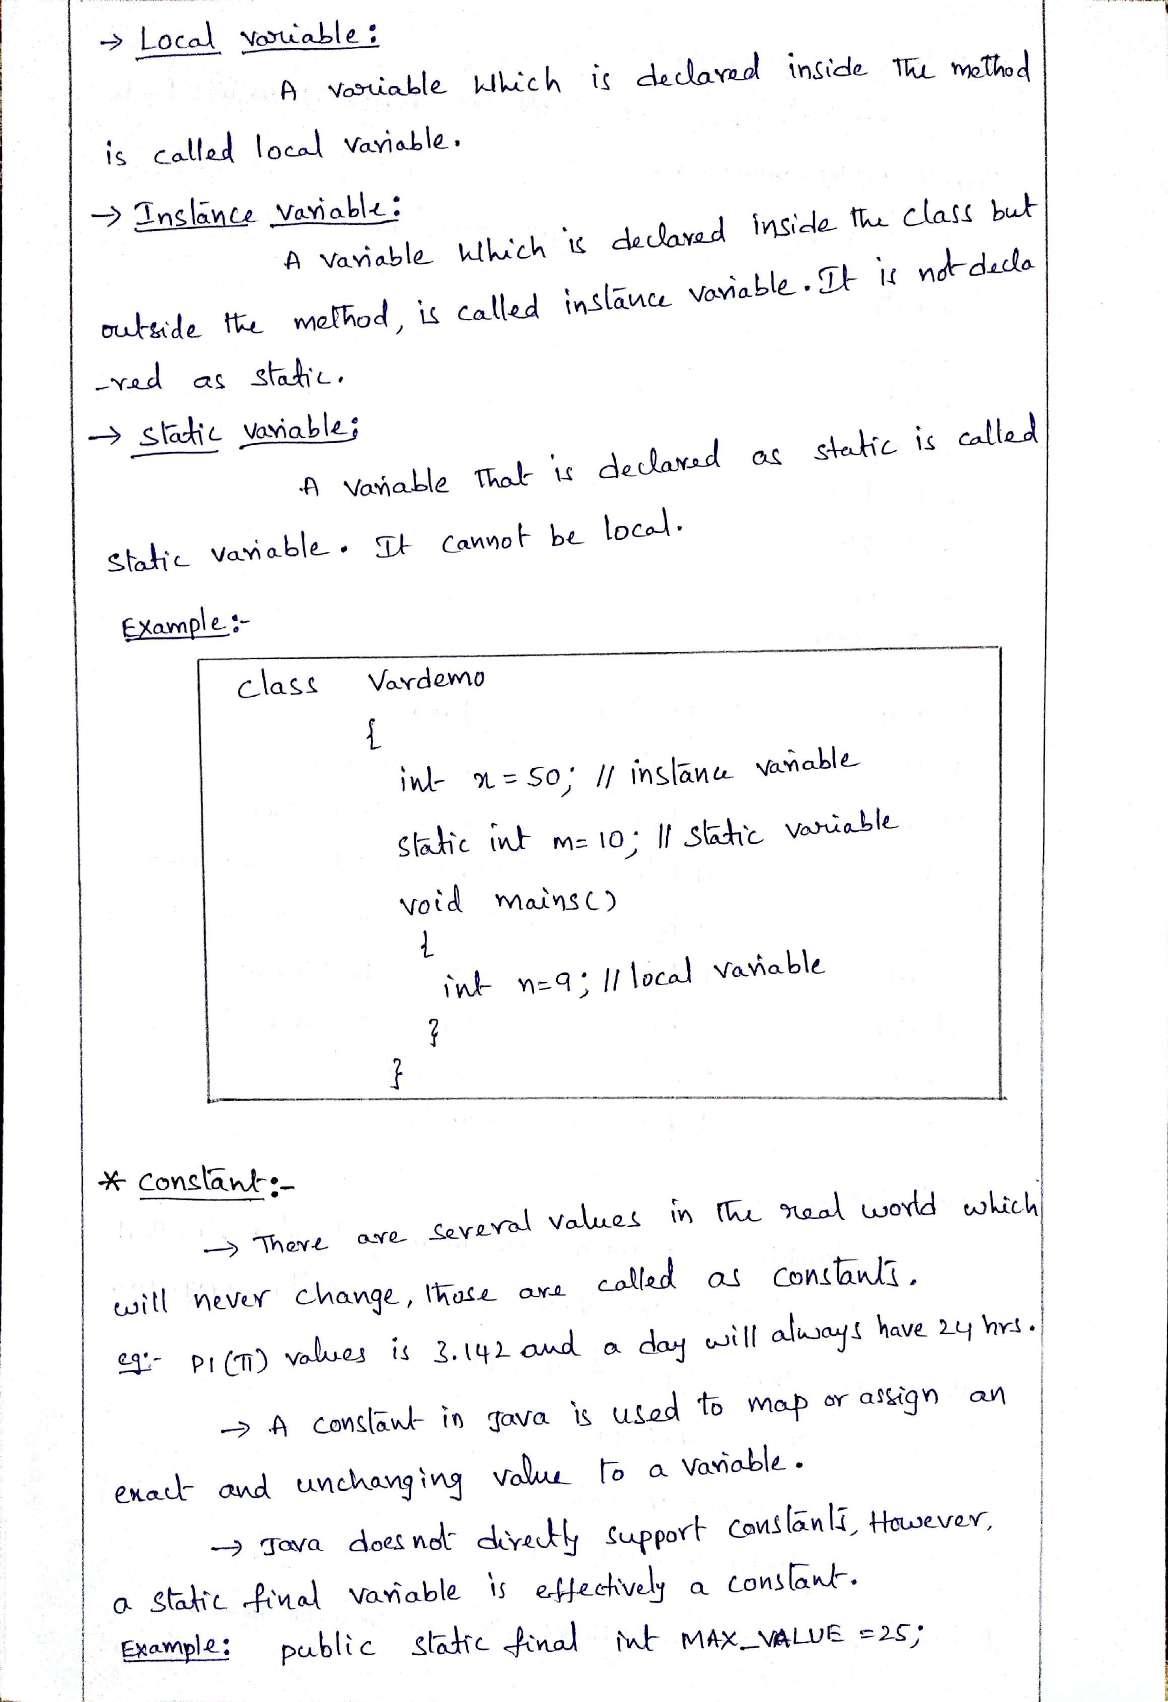 → Local variable:
A variable Which is declared inside The method
is called local variable.
→ Instance variable:
A variable Which is declared inside the class but
outside the method, is called instance variable. It is not decla
-red as static.
→ static variable;
A variable That is declared as static is called
static variable. It cannot be local.
Example:-
class Vardemo
{
int x = 50; // instance variable
static int m = 10; // static variable
void mains()
{
int n=9; // local variable
}
}
* constant:-
→ There are several values in The real world which
will never change, those are called as constants.
eg:- PI (π) values is 3.142 and a day will always have 24 hrs.
→ A constant in Java is used to map or assign an
exact and unchanging value to a variable.
→ Java does not directly support constants, However,
a static final variable is effectively a constant.
Example: public static final int MAX_VALUE = 25;